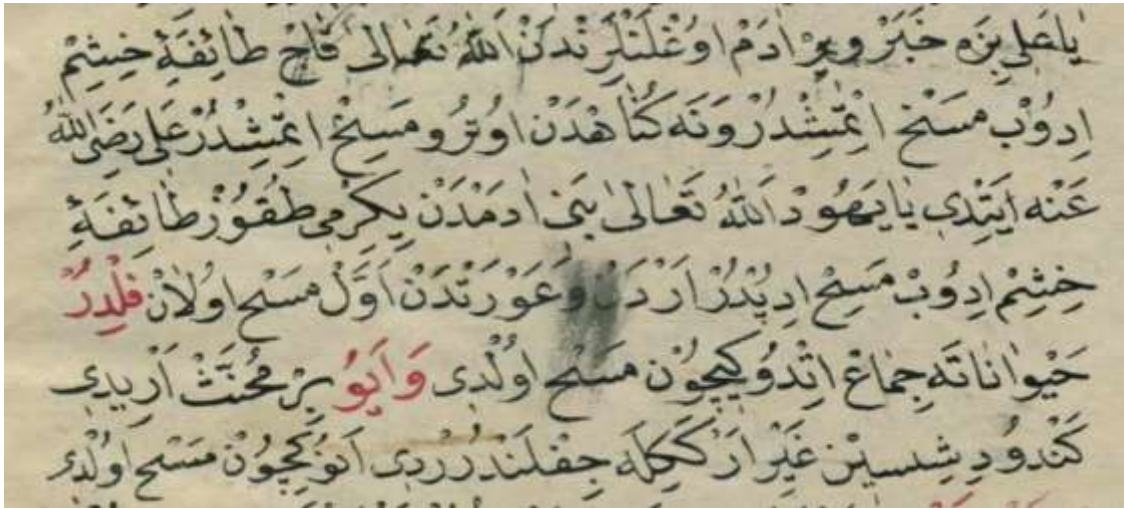 يَا عَلِي بِزَه خَبَرْ وِيرْ اٰدَمْ اوُغْلَنْلَرِنْدَنْ اَللّٰهُ تَعَالٰى قَاجْ طَائِفَهٔ خِشِمْ
اِدُوْبْ مَسْخْ اِتْمِشْدُرْ وَنَه كُنَاهْدَنْ اوُتُرُو مَسِخْ اِتْمِشْدُرْ عَلِي رَضِيَ اللّٰهُ
عَنْه اَيِتْدِي يَا يَهُودْ اَللّٰهُ تَعَالٰى بَنِي اٰدَمْدَنْ يِكِرْمِي طُقُوزْ طَائِفَهٔ
خِشِمْ اِدُوبْ مَسِخْ اِدِپْدُرْ اَرْدَنْ وَعَوْرَتْدَنْ اَوَّلْ مَسْخ اوُلَانْ فِلْدِرُ
حَيْوَانَاتَه جِمَاعْ اِتْدُوكِيچُوْن مَسْخ اوُلْدِى وَاَيُو بِرْ مُخَنَّثْ اَرْ يِدِى
كَنْدُودِشِسِيْن غَيْرْ اَرْكَكِلَه جِفْلَنْدُرُرْدِى اَنُوكِچُوْن مَسْخ اوُلْدِى